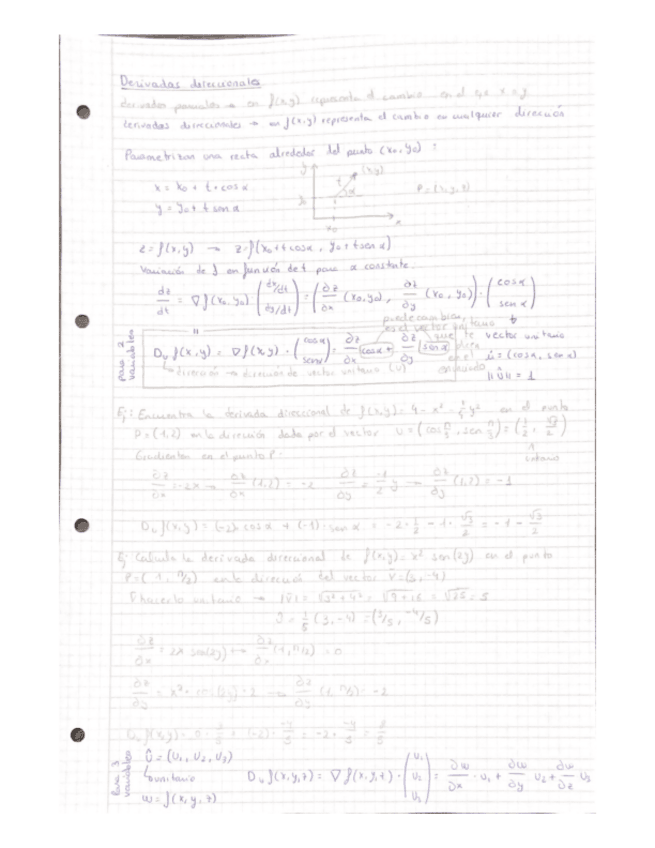 Derivadas direccionales
derivadas parciales → en f(x,y) representa el cambio en el eje x = y
derivadas direccionales → en f(x,y) representa el cambio en cualquier dirección
Parametrizan una recta alrededor del punto (x₀, y₀) :
x = x₀ + t · cos α
y = y₀ + t sen α
y (x,y) t α y₀ x₀ x
z = f(x,y) → z = f(x₀ + t cos α, y₀ + t sen α)
Variación de f en función de t para α constante.
dz/dt = ∇f(x₀, y₀) (dx/dt, dy/dt) = (∂z/∂x (x₀, y₀), ∂z/∂y (x₀, y₀)) · (cos α, sen α)
puede cambiar,
es el vector unitario
para 2 variables
Dᵤ f(x,y) = ∇f(x,y) · (cos α, sen α) = ∂z/∂x cos α + ∂z/∂y sen α
que te dicen en el enunciado
vector unitario
û = (cos α, sen α)
||û|| = 1
dirección → dirección de vector unitario (U)
Ej: Encuentra la derivada direccional de f(x,y) = 4 - x² - 1/4 y² en el punto
P = (1,2) en la dirección dada por el vector u = (cos π/3, sen π/3) = (1/2, √3/2)
unitario
Gradientes en el punto P.
∂z/∂x = -2x → ∂z/∂x (1,2) = -2 ∂z/∂y = -1/2 y → ∂z/∂y (1,2) = -1
Dᵤ f(x,y) = (-2) cos α + (-1) sen α = -2 · 1/2 - 1 · √3/2 = -1 - √3/2
Ej: Calcula la derivada direccional de f(x,y) = x² sen(2y) en el punto
P = (1, π/2) en la dirección del vector v̄ = (3, -4)
hacerlo unitario → |v̄| = √3² + 4² = √9 + 16 = √25 = 5
= 1/5 (3, -4) = (3/5, -4/5)
∂z/∂x = 2x sen(2y) → ∂z/∂x (1, π/2) = 0
∂z/∂y = x² · cos(2y) · 2 → ∂z/∂y (1, π/2) = -2
Dᵤ f(x,y) = 0 · 3/5 + (-2) · -4/5 = -2 · -4/5 = 8/5
para 3 variables
û = (U₁, U₂, U₃)
unitario
w = f(x, y, z)
Dᵤ f(x,y,z) = ∇f(x,y,z) · (U₁, U₂, U₃) = ∂w/∂x · U₁ + ∂w/∂y U₂ + ∂w/∂z U₃